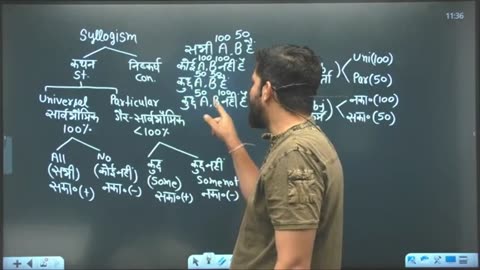 11:36
Syllogism
कथन
St.
निष्कर्ष
Con.
Universal
सार्वभौमिक
100%
Particular
गैर-सार्वभौमिक
<100%
All
(सभी)
सका॰(+)
No
(कोई नहीं)
नका॰(-)
कुछ
(Some)
सका॰(+)
कुछ नहीं
Somenot
नका॰(-)
100 50
सभी A.B है
100 100
कोई A.B नहीं है
50 50
कुछ A.B है
50 100
कुछ A.B नहीं है
Uni(100)
Par(50)
नका॰(100)
सका॰(50)